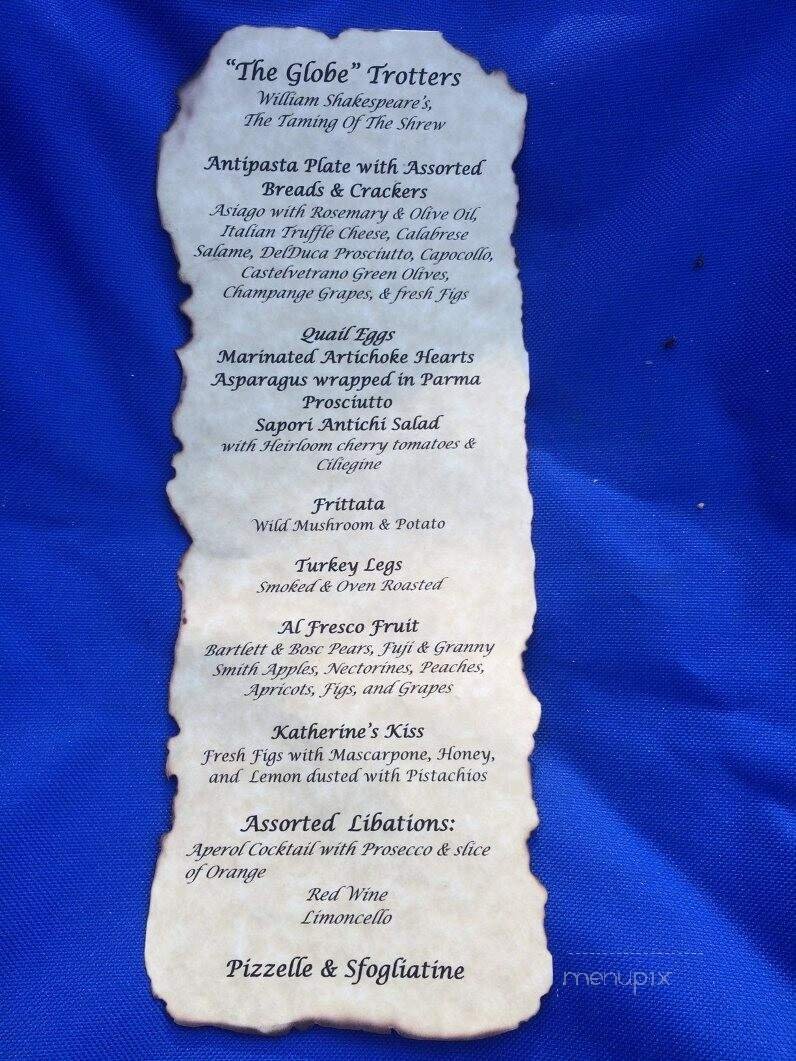 "The Globe" Trotters
William Shakespeare's,
The Taming Of The Shrew
Antipasta Plate with Assorted
Breads & Crackers
Asiago with Rosemary & Olive Oil,
Italian Truffle Cheese, Calabrese
Salame, DelDuca Prosciutto, Capocollo,
Castelvetrano Green Olives,
Champange Grapes, & fresh Figs
Quail Eggs
Marinated Artichoke Hearts
Asparagus wrapped in Parma
Prosciutto
Sapori Antichi Salad
with Heirloom cherry tomatoes &
Ciliegine
Frittata
Wild Mushroom & Potato
Turkey Legs
Smoked & Oven Roasted
Al Fresco Fruit
Bartlett & Bosc Pears, Fuji & Granny
Smith Apples, Nectorines, Peaches,
Apricots, Figs, and Grapes
Katherine's Kiss
Fresh Figs with Mascarpone, Honey,
and Lemon dusted with Pistachios
Assorted Libations:
Aperol Cocktail with Prosecco & slice
of Orange
Red Wine
Limoncello
Pizzelle & Sfogliatine
menupix